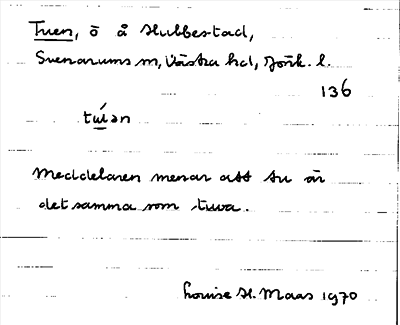 Tuen, ö å Stubbestad,
Svenarums sn, Västra hd, Jönk. l.
136
tu̍ən
Meddelaren menar att tu är
det samma som tuva.
Louise St. Maas 1970